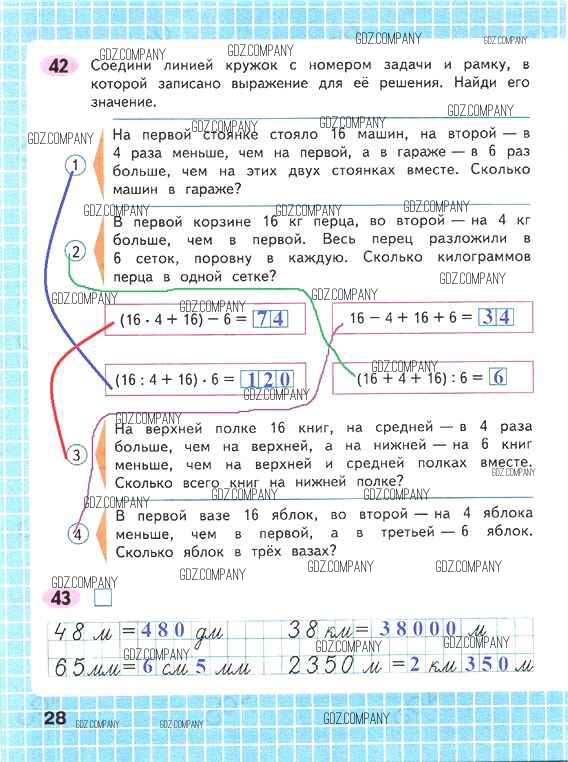 GDZ.COMPANY GDZ.COMPANY GDZ.COMPANY GDZ.COMPANY
42 Соедини линией кружок с номером задачи и рамку, в
которой записано выражение для её решения. Найди его
значение.
GDZ.COMPANY
GDZ.COMPANY GDZ.COMPANY GDZ.COMPANY
1 На первой стоянке стояло 16 машин, на второй — в
4 раза меньше, чем на первой, а в гараже — в 6 раз
больше, чем на этих двух стоянках вместе. Сколько
машин в гараже?
GDZ.COMPANY GDZ.COMPANY GDZ.COMPANY
2 В первой корзине 16 кг перца, во второй — на 4 кг
больше, чем в первой. Весь перец разложили в
6 сеток, поровну в каждую. Сколько килограммов
перца в одной сетке?
GDZ.COMPANY
GDZ.COMPANY GDZ.COMPANY GDZ.COMPANY
(16 · 4 + 16) – 6 = 74 16 – 4 + 16 + 6 = 34
GDZ.COMPANY
(16 : 4 + 16) · 6 = 120 (16 + 4 + 16) : 6 = 6
GDZ.COMPANY
GDZ.COMPANY
3 На верхней полке 16 книг, на средней — в 4 раза
больше, чем на верхней, а на нижней — на 6 книг
меньше, чем на верхней и средней полках вместе.
Сколько всего книг на нижней полке?
GDZ.COMPANY
GDZ.COMPANY GDZ.COMPANY GDZ.COMPANY
4 В первой вазе 16 яблок, во второй — на 4 яблока
меньше, чем в первой, а в третьей — 6 яблок.
Сколько яблок в трёх вазах?
GDZ.COMPANY GDZ.COMPANY GDZ.COMPANY GDZ.COMPANY
43
48 м = 480 дм 38 км = 38000 м
GDZ.COMPANY GDZ.COMPANY GDZ.COMPANY
65 мм = 6 см 5 мм 2350 м = 2 км 350 м
28 GDZ.COMPANY GDZ.COMPANY GDZ.COMPANY